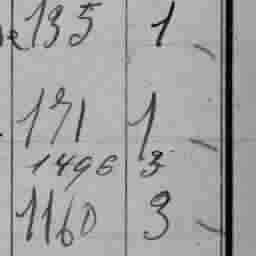 135 1
171 1
1496 3
1160 3